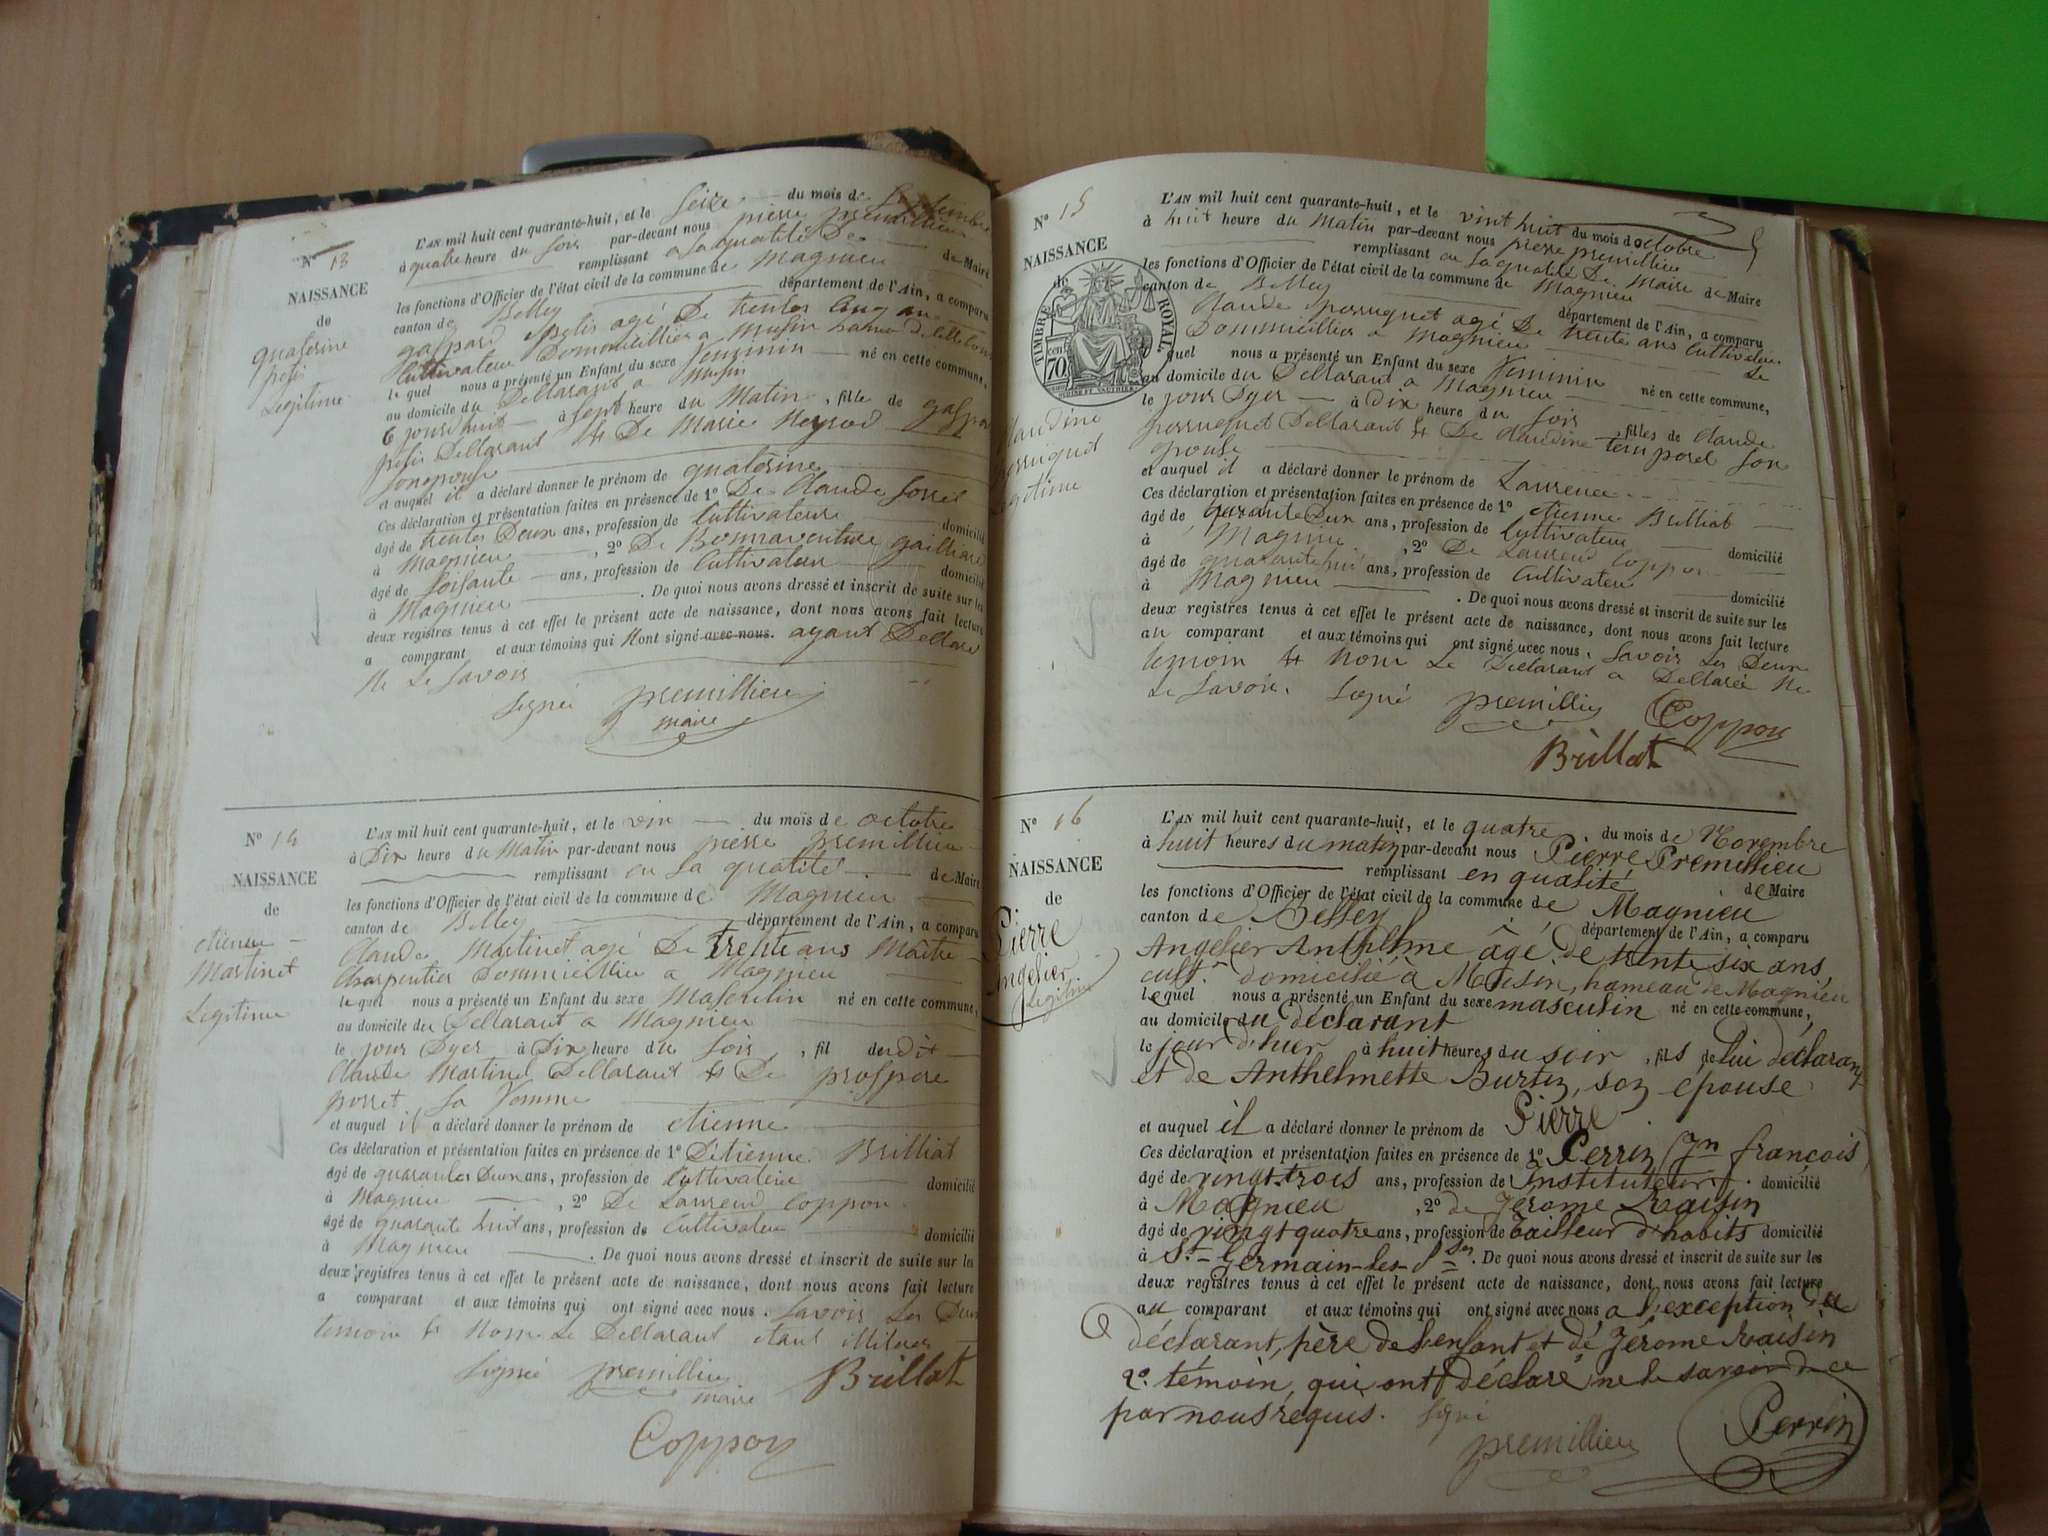 N° 13
NAISSANCE
de
quaterine
petit
Legitime
L'AN mil huit cent quarante-huit, et le Seize du mois de
à quatre heure du soir par-devant nous pierre premillieu
remplissant a la qualité De de Maire
les fonctions d'Officier de l'état civil de la commune de Magnieu
canton de Belley département de l'Ain, a comparu
gaspard petit agé De trente cinq an
Cultivateur Dommicillier a Musin hameau de
le quel nous a présenté un Enfant du sexe feminin né en cette commune,
au domicile du Dellarant a Musin
à sept heure du Matin, fille de gaspard
petit Dellarant & De Marie Neyrod
son epouse
et auquel il a déclaré donner le prénom de quaterine
Ces déclaration et présentation faites en présence de 1° De Claude
âgé de trente Deux ans, profession de Cultivateur domicilié
à Magnieu, 2° De Bonnaventure gailliard
âgé de soisante ans, profession de Cultivateur domicilié
à Magnieu. De quoi nous avons dressé et inscrit de suite sur les
deux registres tenus à cet effet le présent acte de naissance, dont nous avons fait lecture
a comparant et aux témoins qui Nont signé avec nous. ayant Dellaré
Ne Le Savoir
Signée premillieu
maire
N° 14
NAISSANCE
de
etienne
Martinet
Legitime
L'AN mil huit cent quarante-huit, et le vin du mois de octobre
à Dix heure du Matin par-devant nous pierre premillieu
remplissant en la qualité de Maire
les fonctions d'Officier de l'état civil de la commune de Magnieu
canton de Belley département de l'Ain, a comparu
Claude Martinet agé De trente ans Maitre
Charpentier Dommicillié a Magnieu
le quel nous a présenté un Enfant du sexe Masculin né en cette commune,
au domicile du Dellarant a Magnieu
le jour Dyer à Dix heure du soir, fil du dit
Claude Martinet Dellarant & De prospere
porret sa femme
et auquel il a déclaré donner le prénom de etienne
Ces déclaration et présentation faites en présence de 1° Detienne Brilliat
âgé de quarante Deux ans, profession de Cultivateur domicilié
à Magnieu, 2° De Laurend Coppon
âgé de quarante huit ans, profession de Cultivateur domicilié
à Magnieu. De quoi nous avons dressé et inscrit de suite sur les
deux registres tenus à cet effet le présent acte de naissance, dont nous avons fait lecture
a comparant et aux témoins qui ont signé avec nous. savoir Les Deux
temoin & Non Le Dellarant etant
Signée premillieu Brillat
maire
Coppon
N° 15
NAISSANCE
de
TIMBRE ROYAL
70 cen
Claudine
perruquet
Legitime
L'AN mil huit cent quarante-huit, et le vint huit du mois d octobre
à huit heure du Matin par-devant nous pierre premillieu
remplissant en la qualité De Maire de Maire
les fonctions d'Officier de l'état civil de la commune de Magnieu
canton de Belley département de l'Ain, a comparu
Claude perruquet agé De trente ans Cultivateur
Dommicillier a Magnieu Le
quel nous a présenté un Enfant du sexe feminin né en cette commune,
au domicile du Dellarant a Magnieu
le jour Dyer à dix heure du soir, filles de Claude
perruquet Dellarant & De Claudine temporel son
epouse
et auquel il a déclaré donner le prénom de Laurence
Ces déclaration et présentation faites en présence de 1° etienne Brilliat
âgé de quarante Deux ans, profession de Cultivateur domicilié
à Magnieu, 2° De Laurend Coppon
âgé de quarante huit ans, profession de Cultivateur domicilié
à Magnieu. De quoi nous avons dressé et inscrit de suite sur les
deux registres tenus à cet effet le présent acte de naissance, dont nous avons fait lecture
au comparant et aux témoins qui ont signé avec nous. Savoir Les Deux
temoin & Non Le Dellarant a Dellaré Ne
Le Savoir. Signé premillieu Coppon
Brillat
N° 16
NAISSANCE
de
Pierre
Angelier
Legitime
L'AN mil huit cent quarante-huit, et le quatre du mois de Novembre
à huit heures du matin par-devant nous Pierre Premillieu
remplissant en qualité de Maire
les fonctions d'Officier de l'état civil de la commune de Magnieu
canton de Belley département de l'Ain, a comparu
Angelier Anthelme âgé de trente six ans,
cult.r domicilié à Musin, hameau de Magnieu
le quel nous a présenté un Enfant du sexe masculin né en cette commune,
au domicile du déclarant
le jour d'hier à huit heures du soir, fils de lui déclarant
et de Anthelmette Burtin, son epouse
et auquel il a déclaré donner le prénom de Pierre
Ces déclaration et présentation faites en présence de 1° Perrin Jn françois
âgé de vingt trois ans, profession de Instituteur domicilié
à Magnieu, 2° de Jérome Raisin
âgé de vingt quatre ans, profession de tailleur d'habits domicilié
à St Germain-les-. De quoi nous avons dressé et inscrit de suite sur les
deux registres tenus à cet effet le présent acte de naissance, dont nous avons fait lecture
au comparant et aux témoins qui ont signé avec nous, a l'exception du
déclarant, père de l'enfant et de Jérome Raisin
2e témoin, qui ont déclaré ne le savoir de ce
par nous requis. Signé
premillieu Perrin